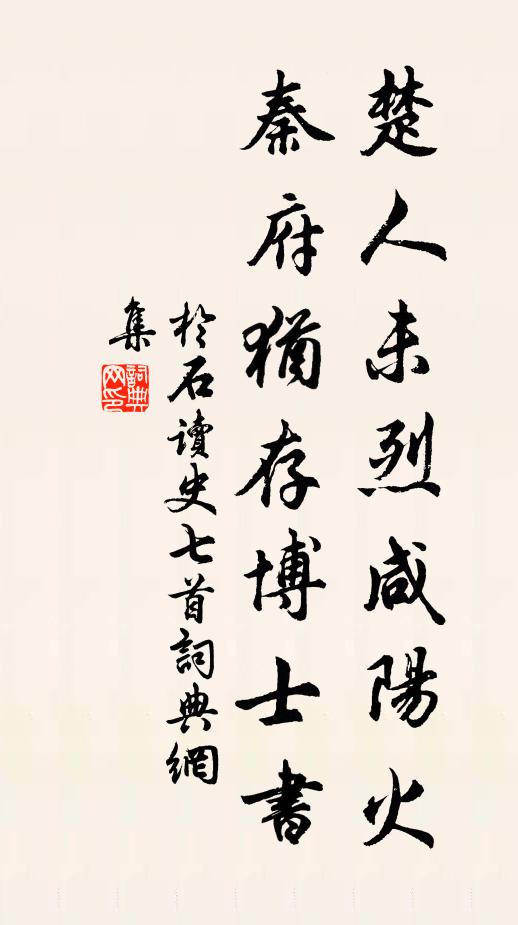 楚人未烈咸陽火
秦府猶存博士書
於石讀史七首詞典網
集
詞典
网印